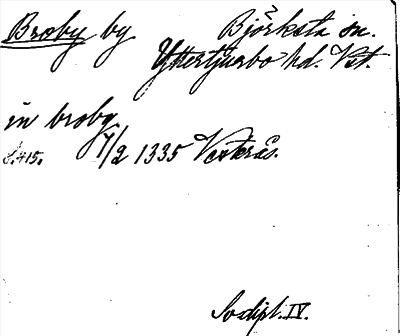 Broby by Björksta sn.
Yttertjurbo hd. Vst.
in broby
S. 415. 7/2 1335 Vesterås.
Sv dipl. IV.